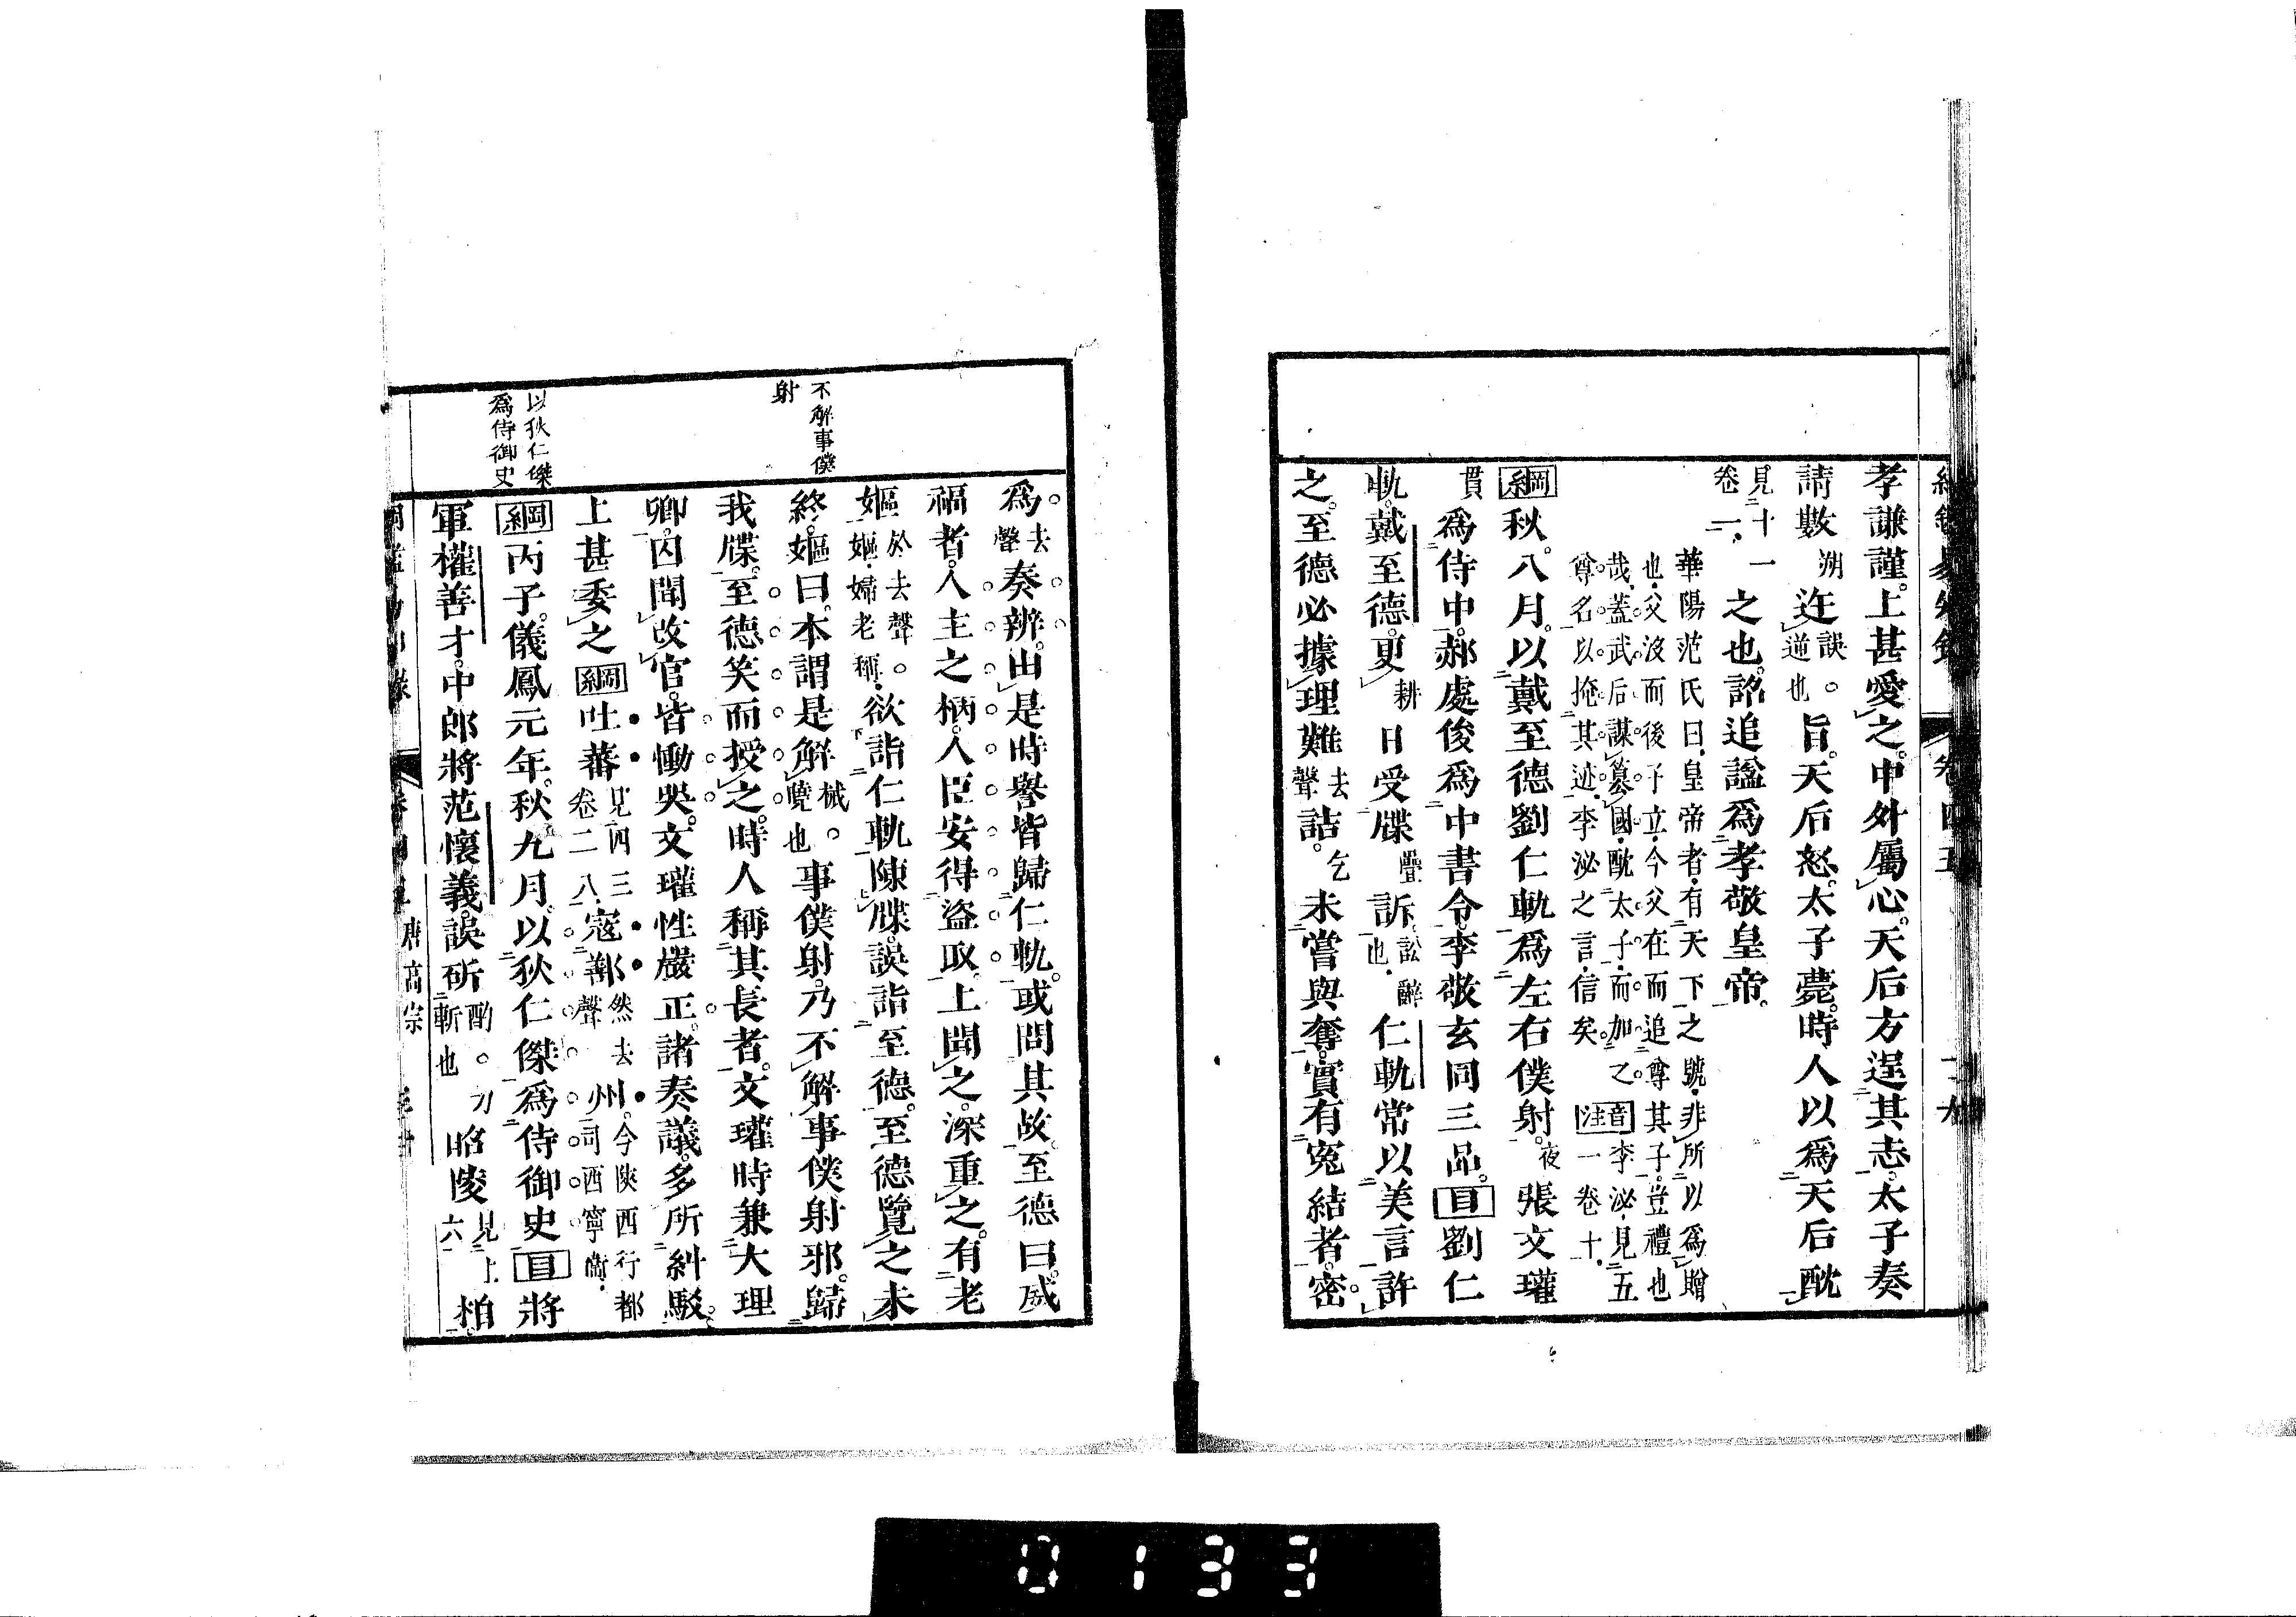 孝謙謹。上甚愛之。中外屬心。天后方逞其志。太子奏
請數朔迕誤。逆也旨。天后怒。太子薨。時人以爲天后酖
見十一卷一。之也。詔追諡爲孝敬皇帝。
華陽范氏曰皇帝者有天下之號非所以爲贈
也父沒而後子立今父在而追尊其子豈禮也
哉蓋武后謀篡國酖太子而加之
尊名以掩其迹李泌之言信矣音注李泌見五一卷十
綱秋。八月。以戴至德劉仁軌爲左右僕射夜。張文瓘
貫爲侍中。郝處俊爲中書令。李敬玄同三品。目劉仁
軌。戴至德。更耕日受牒疊訴訟辭也仁軌常以美言許
之。至德必據理難去聲詰乞。未嘗與奪。實有冤結者。密
爲去聲奏辨。由是時譽皆歸仁軌。或問其故。至德曰。威
福者。人主之柄。人臣安得盜取。上聞之。深重之。有老
嫗於去聲。嫗婦老稱欲詣仁軌陳牒。誤詣至德。至德覽之未
終。嫗曰。本謂是解械。曉也事僕射。乃不解事僕射邪。歸
我牒。至德笑而授之。時人稱其長者。文瓘時兼大理
卿。囚聞改官。皆慟哭。文瓘性嚴正。諸奏議。多所糾駮。
上甚委之綱吐蕃見四三卷二八寇鄯然去聲州。今陝西行都司西寧衞
綱丙子。儀鳳元年。秋九月。以狄仁傑爲侍御史目將
軍權善才。中郎將范懷義。誤斫酌。刀斬也昭陵見上六柏
不解事僕
射
以狄仁傑
爲侍御史
唐高宗
0133